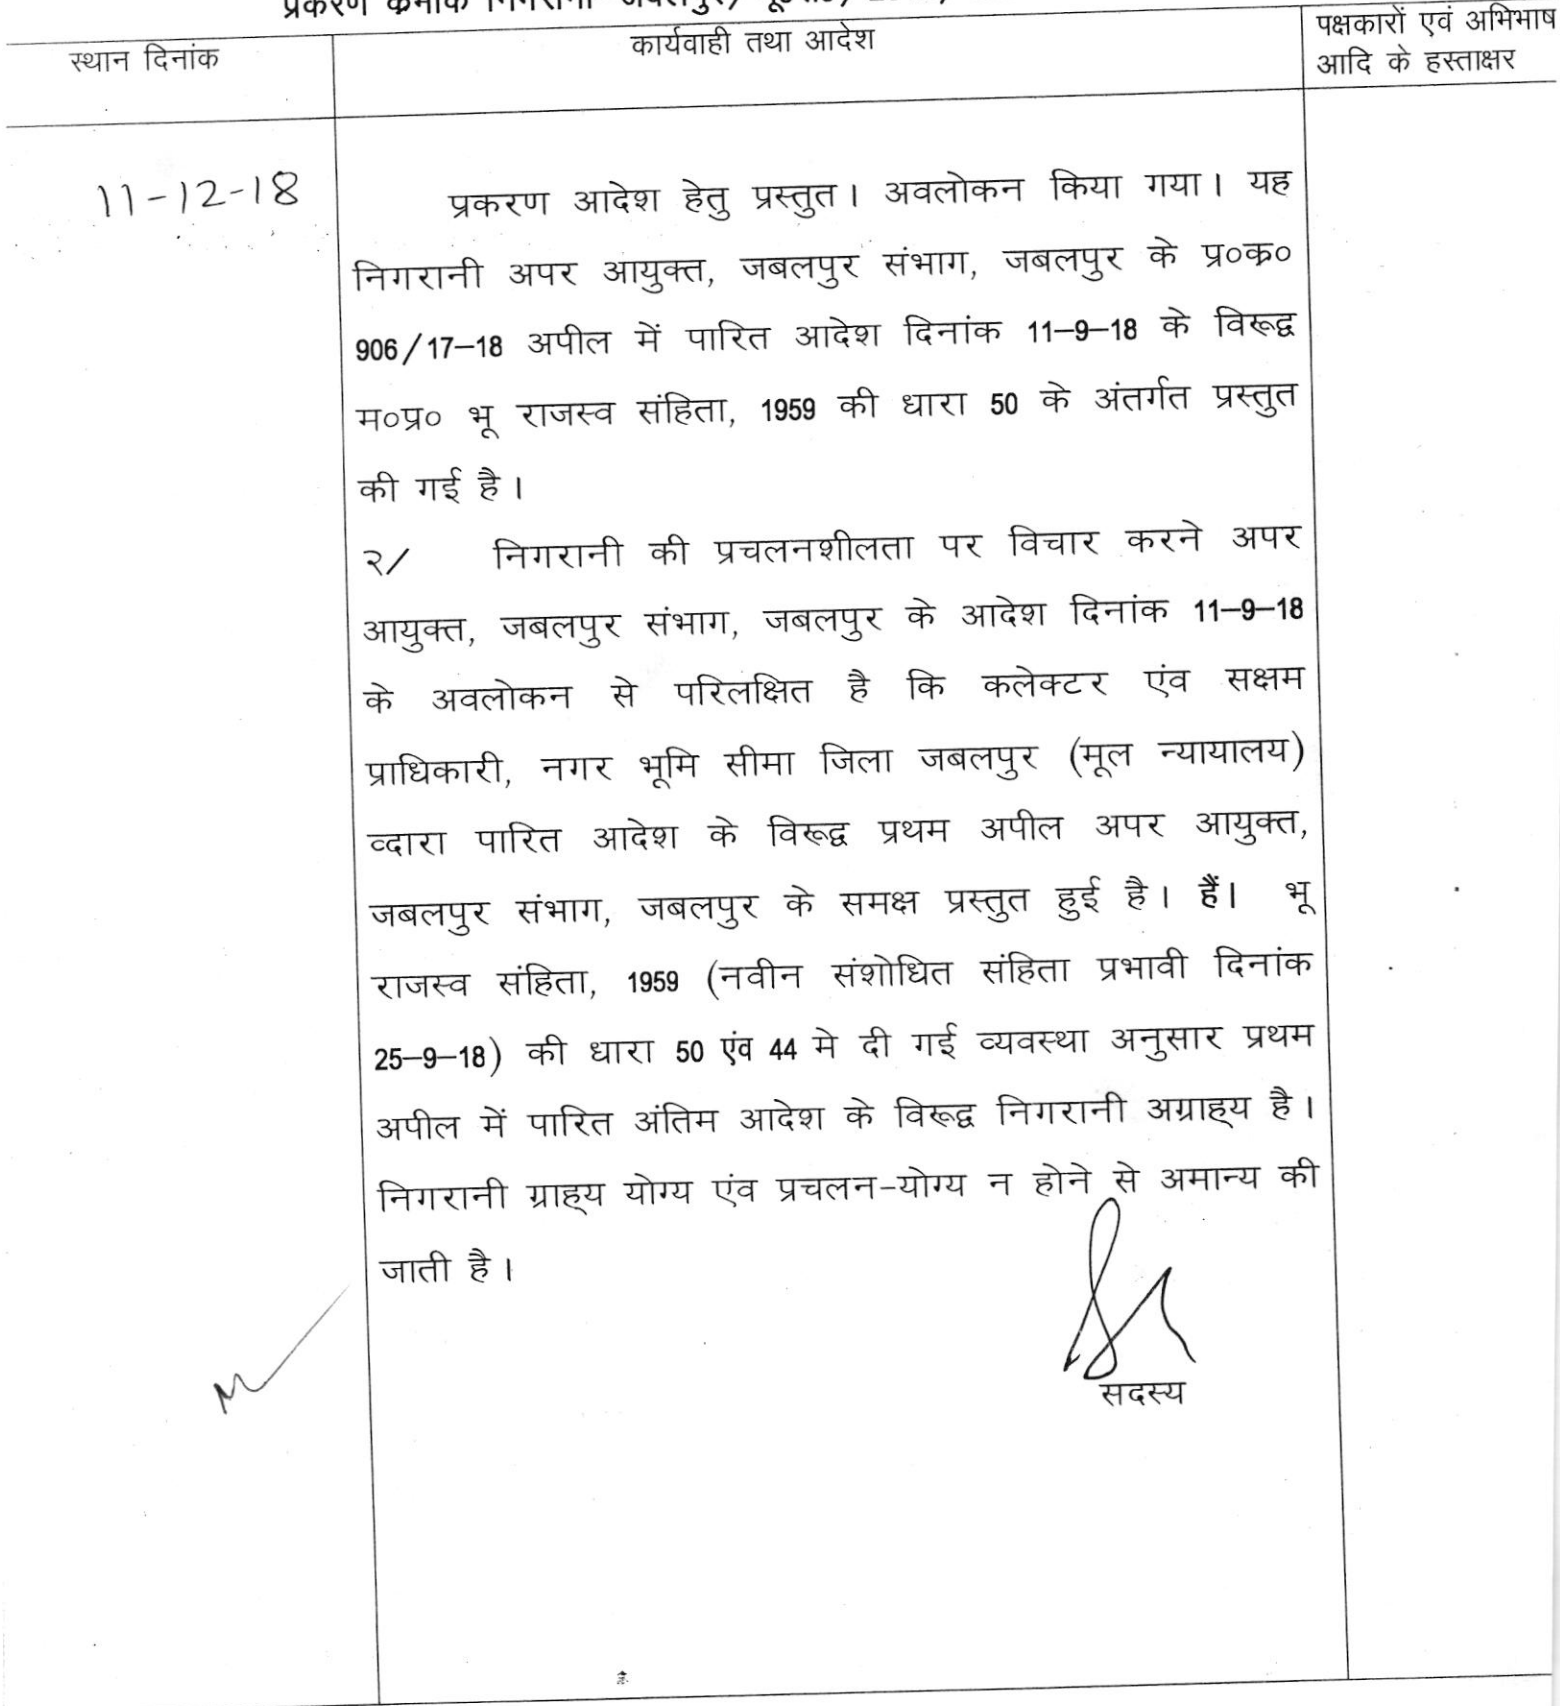 प्रकरण क्रमांक निगरानी
स्थान दिनांक
कार्यवाही तथा आदेश
पक्षकारों एवं अभिभाष
आदि के हस्ताक्षर
11-12-18
प्रकरण आदेश हेतु प्रस्तुत। अवलोकन किया गया। यह
निगरानी अपर आयुक्त, जबलपुर संभाग, जबलपुर के प्र०क्र०
906/17-18 अपील में पारित आदेश दिनांक 11-9-18 के विरूद्व
म०प्र० भू राजस्व संहिता, 1959 की धारा 50 के अंतर्गत प्रस्तुत
की गई है।
२/ निगरानी की प्रचलनशीलता पर विचार करने अपर
आयुक्त, जबलपुर संभाग, जबलपुर के आदेश दिनांक 11-9-18
के अवलोकन से परिलक्षित है कि कलेक्टर एंव सक्षम
प्राधिकारी, नगर भूमि सीमा जिला जबलपुर (मूल न्यायालय)
व्दारा पारित आदेश के विरूद्व प्रथम अपील अपर आयुक्त,
जबलपुर संभाग, जबलपुर के समक्ष प्रस्तुत हुई है। हैं। भू
राजस्व संहिता, 1959 (नवीन संशोधित संहिता प्रभावी दिनांक
25-9-18) की धारा 50 एंव 44 मे दी गई व्यवस्था अनुसार प्रथम
अपील में पारित अंतिम आदेश के विरूद्व निगरानी अग्राह्य है।
निगरानी ग्राह्य योग्य एंव प्रचलन-योग्य न होने से अमान्य की
जाती है।
सदस्य